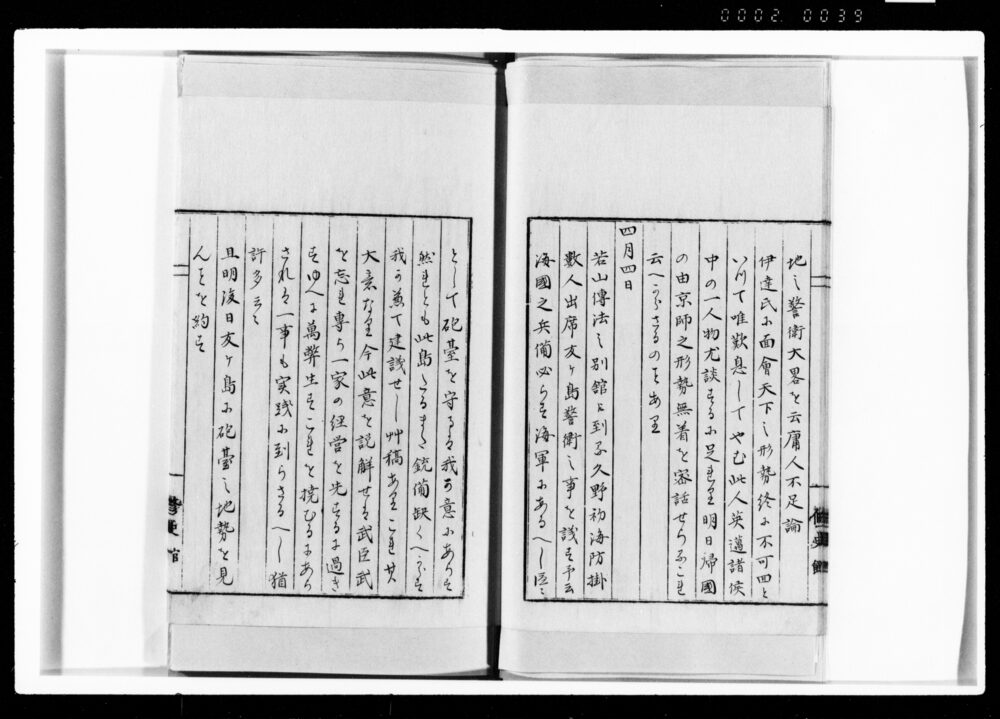 0002 0039
地之警衛大畧を云庸人不足論
伊達氏に面會天下之形勢終に不可回と
いつて唯歎息してやむ此人英邁諸侯
中の一人物尤談するに足れり明日帰國
の由京師之形勢無着を密話せらるこれ
云へからさるのすあり
四月四日
若山傳法之別館に到る久野初海防掛
數人出席友ヶ島警衛之事を議す予云
海國之兵備必らす海軍にあるへし区々
として砲臺を守るは我か意にあらす
然れとも此島たるまた銃備缺くへからす
我か兼て建議せし艸稿ありこれ其
大意なり今此意を説解せは武臣武
を忘れ専ら一家の経営を先するに過き
すゆへに萬弊生すこれを撓むるにあら
されは一事も実践に到らさるへし猶
許多云々
且明後日友ヶ島に砲臺之地勢を見
んことを約す
修史館
修史館